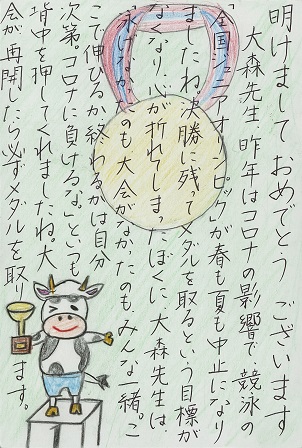 明けましておめでとうございます
大森先生、昨年はコロナの影響で、競泳の
「全国ジュニアオリンピック」が春も夏も中止になり
ましたね。決勝に残ってメダルを取るという目標が
なくなり、心が折れてしまったぼくに、大森先生は、
「泳げなかったのも大会がなかったのもみんな一緒。こ
こで伸びるか終わるかは自分
次第。コロナに負けるな」といつも
背中を押してくれましたね。大
会が再開したら必ずメダルを取り
ます。